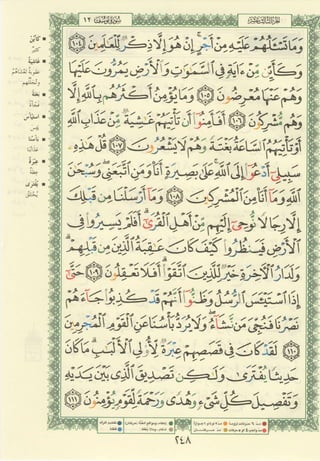 سورة يوسف ١٢
وَمَا تَسْـَٔلُهُمْ عَلَيْهِ مِنْ أَجْرٍ ۚ إِنْ هُوَ إِلَّا ذِكْرٌ لِّلْعَـٰلَمِينَ ١٠٤
وَكَأَيِّن مِّنْ ءَايَةٍ فِى ٱلسَّمَـٰوَٰتِ وَٱلْأَرْضِ يَمُرُّونَ عَلَيْهَا
وَهُمْ عَنْهَا مُعْرِضُونَ ١٠٥ وَمَا يُؤْمِنُ أَكْثَرُهُم بِٱللَّهِ إِلَّا
وَهُم مُّشْرِكُونَ ١٠٦ أَفَأَمِنُوٓا۟ أَن تَأْتِيَهُمْ غَـٰشِيَةٌ مِّنْ عَذَابِ ٱللَّهِ
أَوْ تَأْتِيَهُمُ ٱلسَّاعَةُ بَغْتَةً وَهُمْ لَا يَشْعُرُونَ ١٠٧ قُلْ هَـٰذِهِۦ
سَبِيلِىٓ أَدْعُوٓا۟ إِلَى ٱللَّهِ ۚ عَلَىٰ بَصِيرَةٍ أَنَا۠ وَمَنِ ٱتَّبَعَنِى ۖ وَسُبْحَـٰنَ
ٱللَّهِ وَمَآ أَنَا۠ مِنَ ٱلْمُشْرِكِينَ ١٠٨ وَمَآ أَرْسَلْنَا مِن قَبْلِكَ
إِلَّا رِجَالًا نُّوحِىٓ إِلَيْهِم مِّنْ أَهْلِ ٱلْقُرَىٰٓ ۗ أَفَلَمْ يَسِيرُوا۟ فِى
ٱلْأَرْضِ فَيَنظُرُوا۟ كَيْفَ كَانَ عَـٰقِبَةُ ٱلَّذِينَ مِن قَبْلِهِمْ ۗ
وَلَدَارُ ٱلْـَٔاخِرَةِ خَيْرٌ لِّلَّذِينَ ٱتَّقَوْا۟ ۗ أَفَلَا تَعْقِلُونَ ١٠٩ حَتَّىٰٓ
إِذَا ٱسْتَيْـَٔسَ ٱلرُّسُلُ وَظَنُّوٓا۟ أَنَّهُمْ قَدْ كُذِبُوا۟ جَآءَهُمْ
نَصْرُنَا فَنُجِّىَ مَن نَّشَآءُ ۖ وَلَا يُرَدُّ بَأْسُنَا عَنِ ٱلْقَوْمِ ٱلْمُجْرِمِينَ
١١٠ لَقَدْ كَانَ فِى قَصَصِهِمْ عِبْرَةٌ لِّأُو۟لِى ٱلْأَلْبَـٰبِ ۗ مَا كَانَ
حَدِيثًا يُفْتَرَىٰ وَلَـٰكِن تَصْدِيقَ ٱلَّذِى بَيْنَ يَدَيْهِ
وَتَفْصِيلَ كُلِّ شَىْءٍ وَهُدًى وَرَحْمَةً لِّقَوْمٍ يُؤْمِنُونَ ١١١
٢٤٨